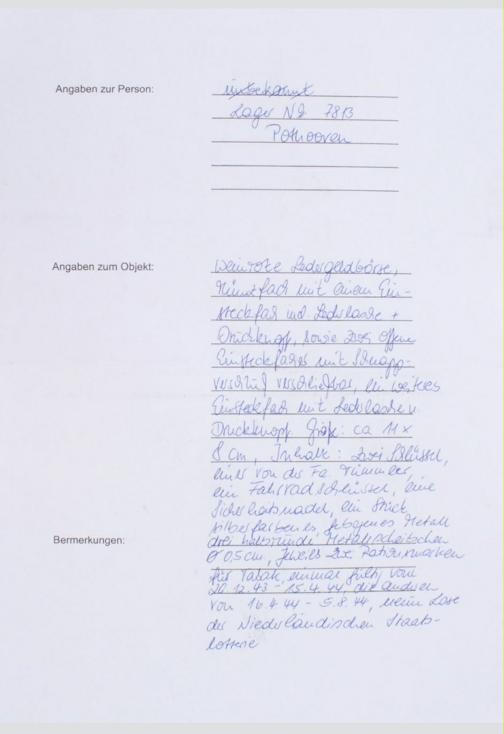 Angaben zur Person:
unbekannt
Lager Nº 7813
Pothooven
Angaben zum Objekt:
Weinrote Ledergeldbörse,
Münzfach mit einem Ein-
steckfach und Lederlasche +
Druckknopf, sowie zwei offene
Einsteckfächer mit Schnapp-
verschluß verschließbar, ein weiteres
Einsteckfach mit Lederlasche u
Druckknopf Größe: ca 11 x
8 cm, Inhalt: Zwei Schlüssel,
einer von der Fa. Tümmler,
ein Fahrradschlüssel, eine
Sicherheitsnadel, ein Stück
silberfarbenes, gebogenes Metall
drei halbrunde Metallscheibchen
Bemerkungen:
Ø 0,5cm, jeweils zwei Rationsmarken
für Tabak, einmal gültig vom
20.12.43 - 15.4.44, die anderen
von 16.4.44 - 5.8.44, neun Lose
der Niederländischen Staats-
lotterie